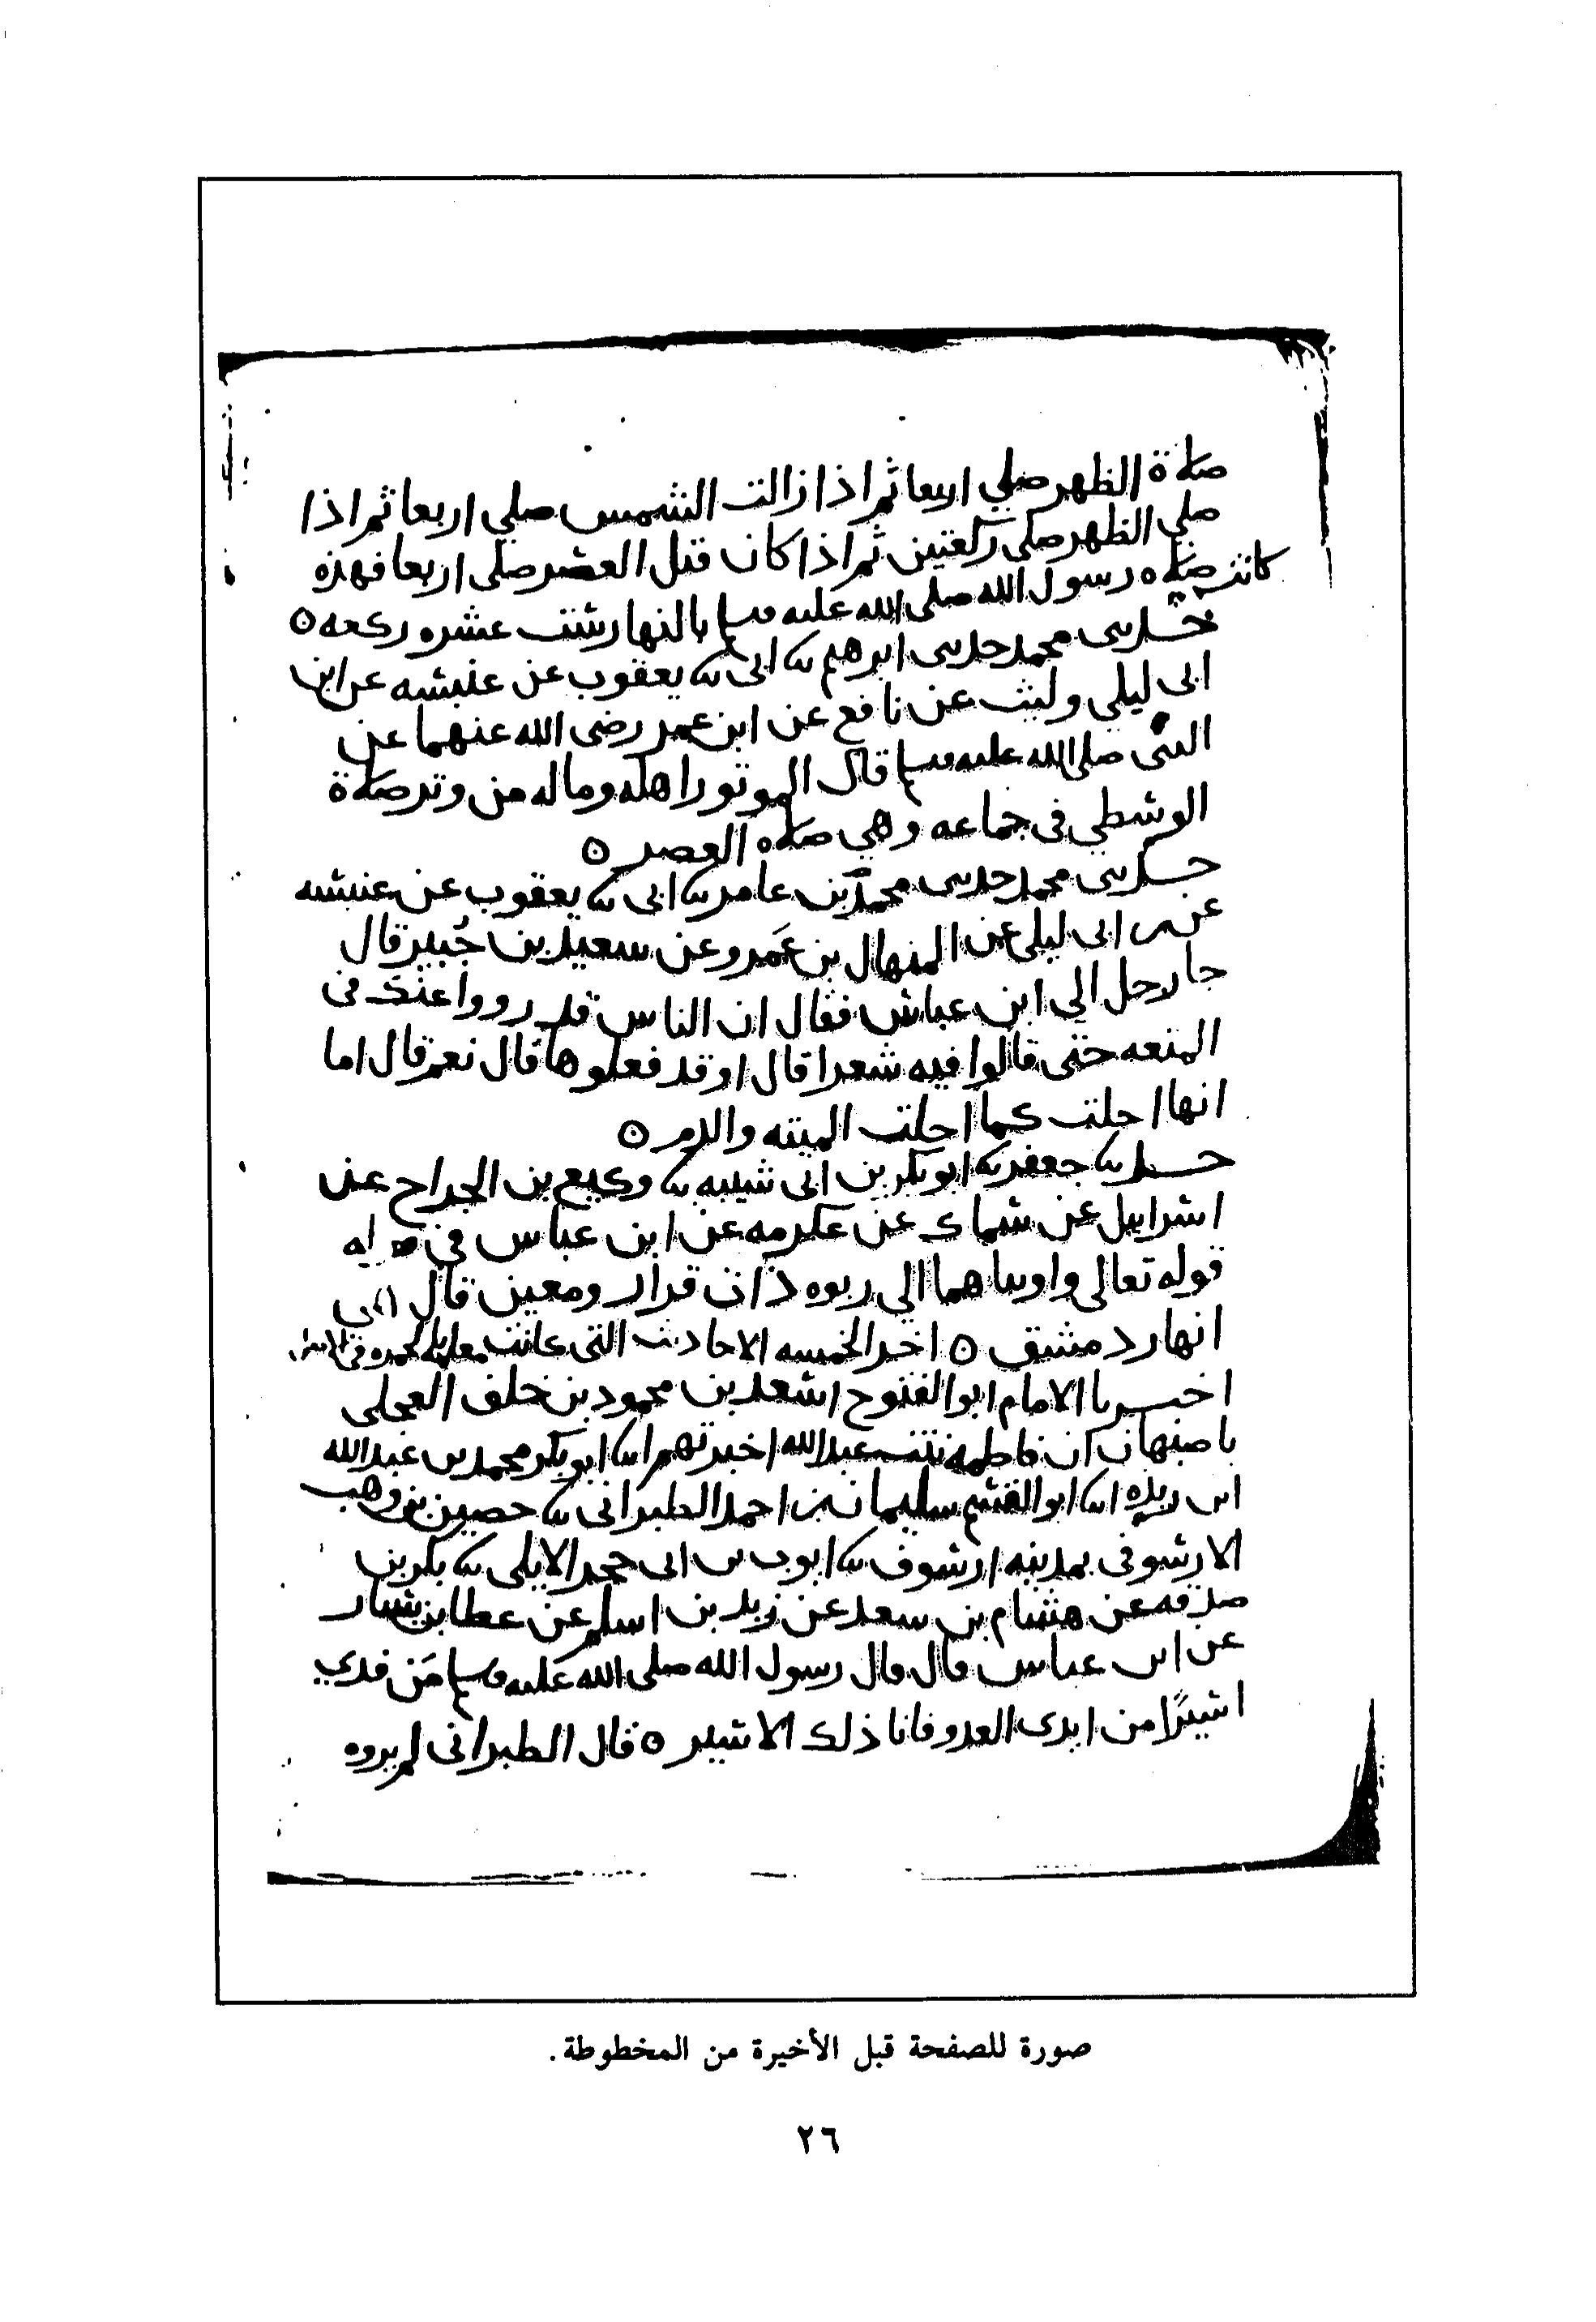 صلاة الظهر صلي اربعا ثم اذا زالت الشمس صلي اربعا ثم اذا
صلي الظهر صلى ركعتين ثم اذا كان قبل العصر صلى اربعا فهذه
كانت صلاه رسول الله صلى الله عليه وسلم بالنهار ست عشره ركعه ه
حدثنى محمد حدثنى ابرهيم نا ابى نا يعقوب عن عنبسه عن ابن
ابى ليلي وليث عن نافع عن ابن عمر رضى الله عنهما عن
النبى صلى الله عليه وسلم قال الموتور اهله وماله من وتر صلاة
الوسطي فى جماعه وهي صلاه العصر ه
حدثنى محمد حدثنى محمد بن عامر نا ابى نا يعقوب عن عنبسه
عن ابن ابى ليلى عن المنهال بن عَمرو عن سعيد بن جُبير قال
جا رجل الي ابن عباس فقال ان الناس قد رووا عنك فى
المتعه حتى قالوا فيه شعرا قال او قد فعلوها قال نعم قال اما
انها احلت كما احلت الميته والدم ه
حدثنا جعفر نا ابو بكر بن ابى شيبه نا وكيع بن الجراح عن
اسراييل عن سماك عن عكرمه عن ابن عباس في
قوله تعالى واويناهما الي ربوه ذات قرار ومعين قال
انهار دمشق ه اخر الخمسه الاحاديث التى كانت
اخبرنا الامام ابو الفتوح اسعد بن محمود بن خلف العجلى
باصبهان ان فاطمه بنت عبد الله اخبرتهم انا ابو بكر محمد بن عبد الله
ابن ريذه انا ابو القسم سليمان بن احمد الطبرانى نا حصين بن وهب
الارسوفى بمدينه ارسوف نا ايوب بن ابى حجر الايلى نا بكر بن
صدقه عن هشام بن سعد عن زيد بن اسلم عن عطا بن يسار
عن ابن عباس قال قال رسول الله صلى الله عليه وسلم مَن فدي
اسيرًا من ايدى العدو فانا ذلك الاسير ه قال الطبرانى لم يروه
صورة للصفحة قبل الأخيرة من المخطوطة.
٢٦